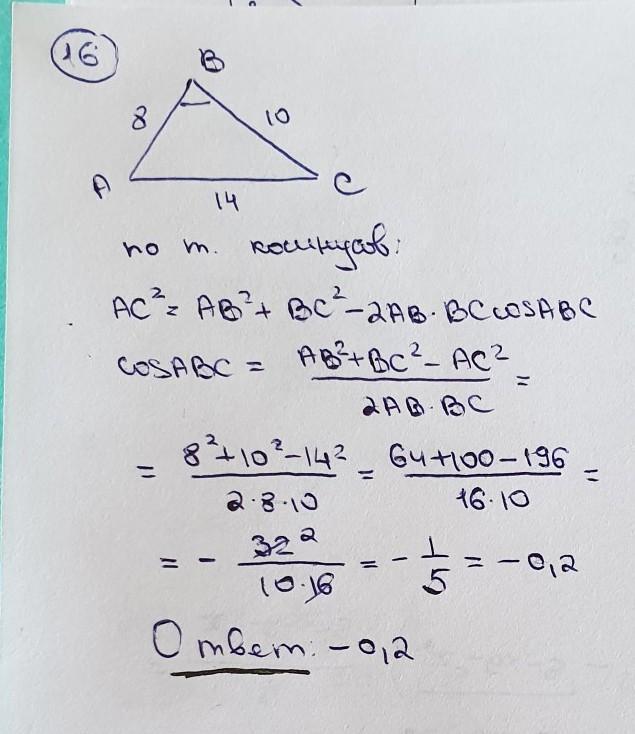 16
B
8
10
A
C
14
по т. косинусов:
AC² = AB² + BC² - 2AB · BC cosABC
cosABC = (AB² + BC² - AC²) / (2AB · BC) =
= (8² + 10² - 14²) / (2 · 8 · 10) = (64 + 100 - 196) / (16 · 10) =
= - 32 2 / (10 · 16) = - 1/5 = -0,2
Ответ: -0,2